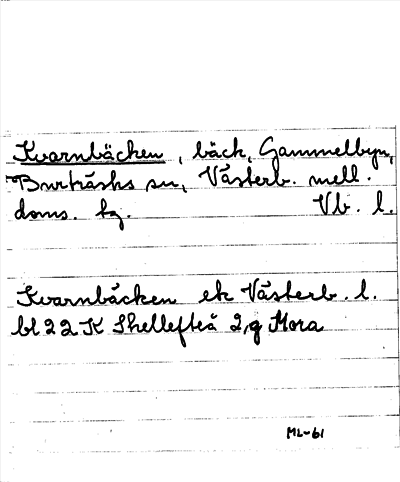 Kvarnbäcken, bäck, Gammelbyn,
Burträsks sn, Västerb. mell.
doms. tg. Vb. l.
Kvarnbäcken ek Västerb. l.
bl 22 K Skellefteå 2,g Mora
ML-61